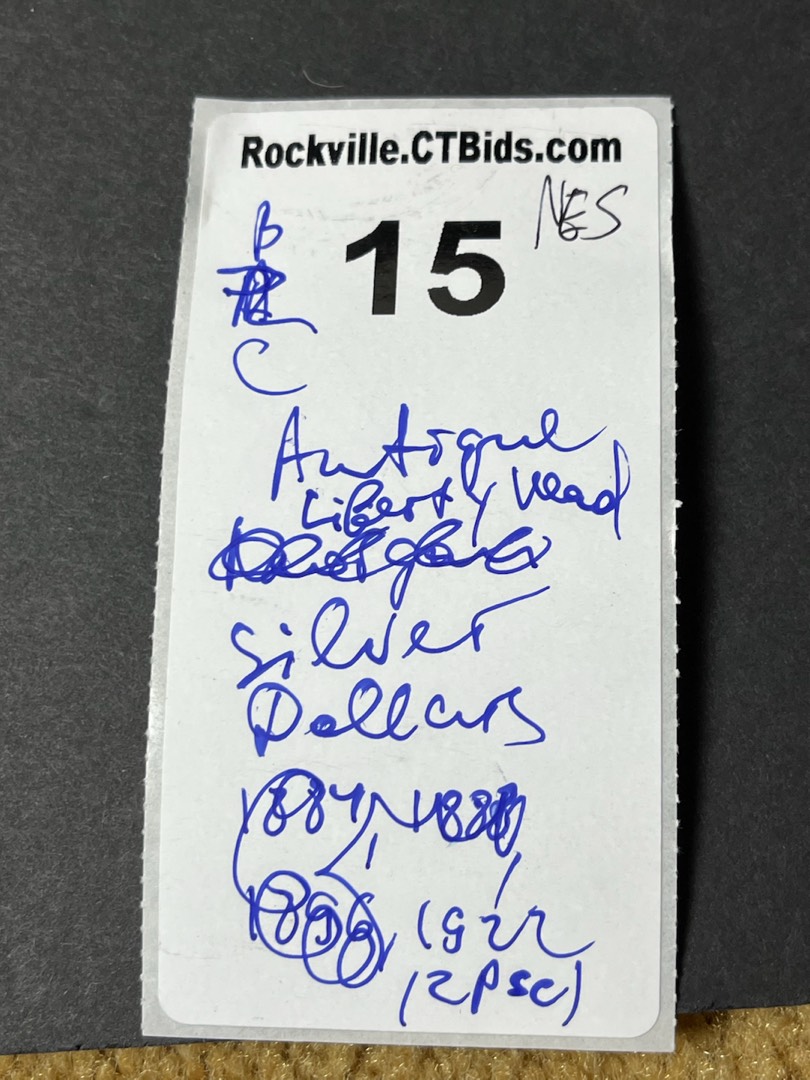 Rockville.CTBids.com
NES
15
B
C
Antique
Liberty Head
Silver
Dollars
1884,
1922
(2psc)